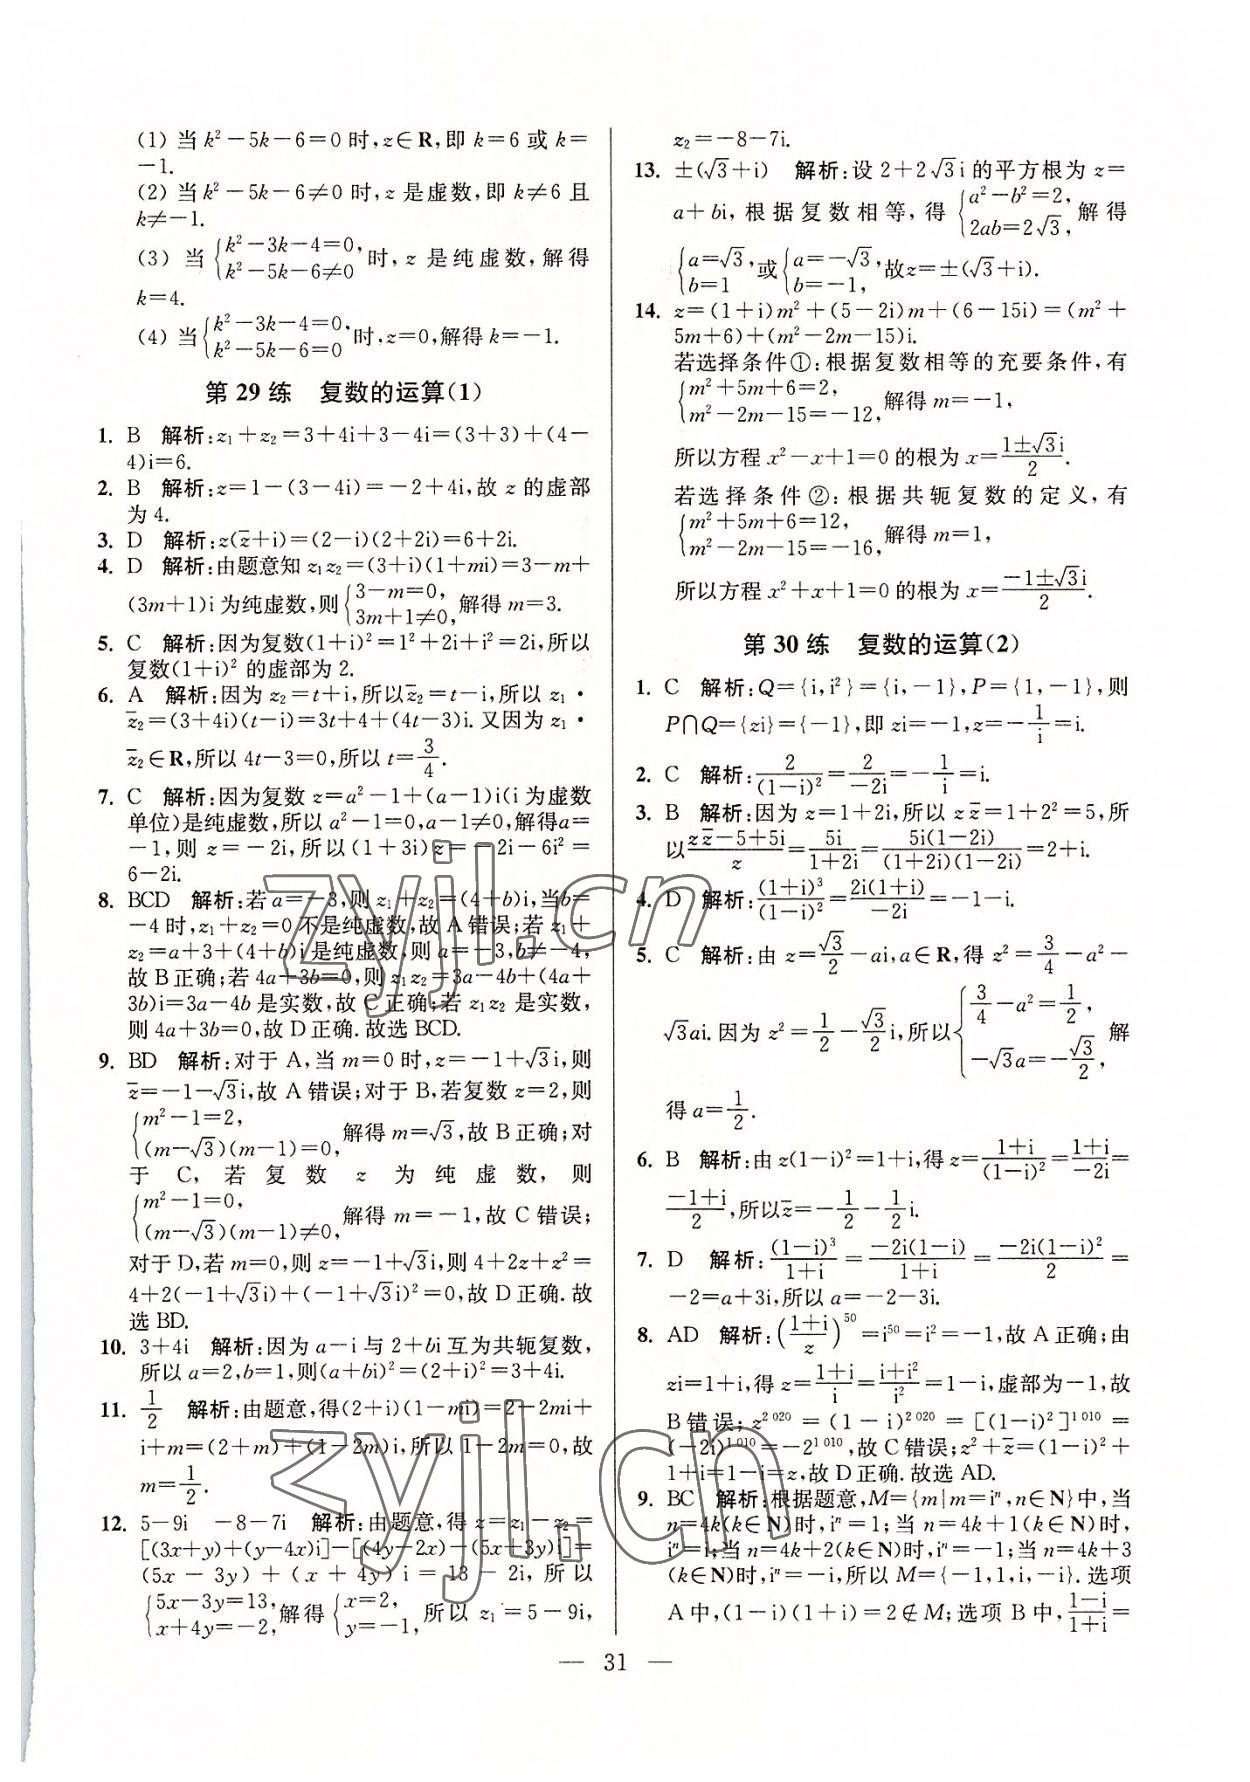 (1) 当 k²－5k－6＝0 时,z∈R,即 k＝6 或 k＝
－1.
(2) 当 k²－5k－6≠0 时,z 是虚数,即 k≠6 且
k≠－1.
(3) 当{k²－3k－4＝0, k²－5k－6≠0 时,z 是纯虚数,解得
k＝4.
(4) 当{k²－3k－4＝0, k²－5k－6＝0 时,z＝0,解得 k＝－1.
第 29 练 复数的运算(1)
1. B 解析:z₁＋z₂＝3＋4i＋3－4i＝(3＋3)＋(4－
4)i＝6.
2. B 解析:z＝1－(3－4i)＝－2＋4i,故 z 的虚部
为 4.
3. D 解析:z(z̅＋i)＝(2－i)(2＋2i)＝6＋2i.
4. D 解析:由题意知 z₁z₂＝(3＋i)(1＋mi)＝3－m＋
(3m＋1)i 为纯虚数,则{3－m＝0, 3m＋1≠0, 解得 m＝3.
5. C 解析:因为复数(1＋i)²＝1²＋2i＋i²＝2i,所以
复数(1＋i)² 的虚部为 2.
6. A 解析:因为 z₂＝t＋i,所以z̅₂＝t－i,所以 z₁·
z̅₂＝(3＋4i)(t－i)＝3t＋4＋(4t－3)i. 又因为 z₁·
z̅₂∈R,所以 4t－3＝0,所以 t＝3/4.
7. C 解析:因为复数 z＝a²－1＋(a－1)i(i 为虚数
单位)是纯虚数,所以 a²－1＝0,a－1≠0,解得a＝
－1,则 z＝－2i,所以(1＋3i)z＝－2i－6i²＝
6－2i.
8. BCD 解析:若 a＝－3,则 z₁＋z₂＝(4＋b)i,当b＝
－4 时,z₁＋z₂＝0 不是纯虚数,故 A 错误;若 z₁＋
z₂＝a＋3＋(4＋b)i是纯虚数,则 a＝－3,b≠－4,
故 B 正确;若 4a＋3b＝0,则 z₁z₂＝3a－4b＋(4a＋
3b)i＝3a－4b 是实数,故 C 正确;若 z₁z₂ 是实数,
则 4a＋3b＝0,故 D 正确.故选 BCD.
9. BD 解析:对于 A,当 m＝0 时,z＝－1＋√3i,则
z̅＝－1－√3i,故 A 错误;对于 B,若复数 z＝2,则
{m²－1＝2, (m－√3)(m－1)＝0, 解得 m＝√3,故 B 正确;对
于 C, 若 复 数 z 为 纯 虚 数, 则
{m²－1＝0, (m－√3)(m－1)≠0, 解得 m＝－1,故 C 错误;
对于 D,若 m＝0,则 z＝－1＋√3i,则 4＋2z＋z²＝
4＋2(－1＋√3i)＋(－1＋√3i)²＝0,故 D 正确.故
选 BD.
10. 3＋4i 解析:因为 a－i 与 2＋bi 互为共轭复数,
所以 a＝2,b＝1,则(a＋bi)²＝(2＋i)²＝3＋4i.
11. 1/2 解析:由题意,得(2＋i)(1－mi)＝2－2mi＋
i＋m＝(2＋m)＋(1－2m)i,所以 1－2m＝0,故
m＝1/2.
12. 5－9i －8－7i 解析:由题意,得 z＝z₁－z₂＝
[(3x＋y)＋(y－4x)i]－[(4y－2x)－(5x＋3y)i]＝
(5x－3y)＋(x＋4y)i＝13－2i, 所 以
{5x－3y＝13, x＋4y＝－2, 解得{x＝2, y＝－1, 所以 z₁＝5－9i,
z₂＝－8－7i.
13. ±(√3＋i) 解析:设 2＋2√3i 的平方根为 z＝
a＋bi,根据复数相等,得{a²－b²＝2, 2ab＝2√3, 解得
{a＝√3, b＝1 或{a＝－√3, b＝－1, 故z＝±(√3＋i).
14. z＝(1＋i)m²＋(5－2i)m＋(6－15i)＝(m²＋
5m＋6)＋(m²－2m－15)i.
若选择条件①:根据复数相等的充要条件,有
{m²＋5m＋6＝2, m²－2m－15＝－12, 解得 m＝－1,
所以方程 x²－x＋1＝0 的根为 x＝(1±√3i)/2.
若选择条件②:根据共轭复数的定义,有
{m²＋5m＋6＝12, m²－2m－15＝－16, 解得 m＝1,
所以方程 x²＋x＋1＝0 的根为 x＝(－1±√3i)/2.
第 30 练 复数的运算(2)
1. C 解析:Q＝{i,i²}＝{i,－1},P＝{1,－1},则
P∩Q＝{zi}＝{－1},即 zi＝－1,z＝－1/i＝i.
2. C 解析:2/(1－i)²＝2/－2i＝－1/i＝i.
3. B 解析:因为 z＝1＋2i,所以 zz̅＝1＋2²＝5,所
以(zz̅－5＋5i)/z＝5i/(1＋2i)＝5i(1－2i)/((1＋2i)(1－2i))＝2＋i.
4. D 解析:(1＋i)³/(1－i)²＝2i(1＋i)/－2i＝－1－i.
5. C 解析:由 z＝√3/2－ai,a∈R,得 z²＝3/4－a²－
√3ai.因为 z²＝1/2－(√3/2)i,所以{3/4－a²＝1/2, －√3a＝－√3/2, 解
得 a＝1/2.
6. B 解析:由 z(1－i)²＝1＋i,得 z＝(1＋i)/(1－i)²＝(1＋i)/－2i＝
(－1＋i)/2,所以z̅＝－1/2－(1/2)i.
7. D 解析:(1－i)³/(1＋i)＝－2i(1－i)/(1＋i)＝－2i(1－i)²/2＝
－2＝a＋3i,所以 a＝－2－3i.
8. AD 解析:((1＋i)/z)⁵⁰＝i⁵⁰＝i²＝－1,故 A 正确;由
zi＝1＋i,得 z＝(1＋i)/i＝(i＋i²)/i²＝1－i,虚部为－1,故
B 错误;z²⁰²⁰＝(1－i)²⁰²⁰＝[(1－i)²]¹⁰¹⁰＝
(－2i)¹⁰¹⁰＝－2¹⁰¹⁰,故 C 错误;z²＋z̅＝(1－i)²＋
1＋i＝1－i＝z,故 D 正确.故选 AD.
9. BC 解析:根据题意,M＝{m|m＝iⁿ,n∈N}中,当
n＝4k(k∈N)时,iⁿ＝1;当 n＝4k＋1(k∈N)时,
iⁿ＝i;当 n＝4k＋2(k∈N)时,iⁿ＝－1;当 n＝4k＋3
(k∈N)时,iⁿ＝－i,所以 M＝{－1,1,i,－i}.选项
A 中,(1－i)(1＋i)＝2∉M;选项 B 中,(1－i)/(1＋i)＝
— 31 —
zyjl.cn
zyjl.cn